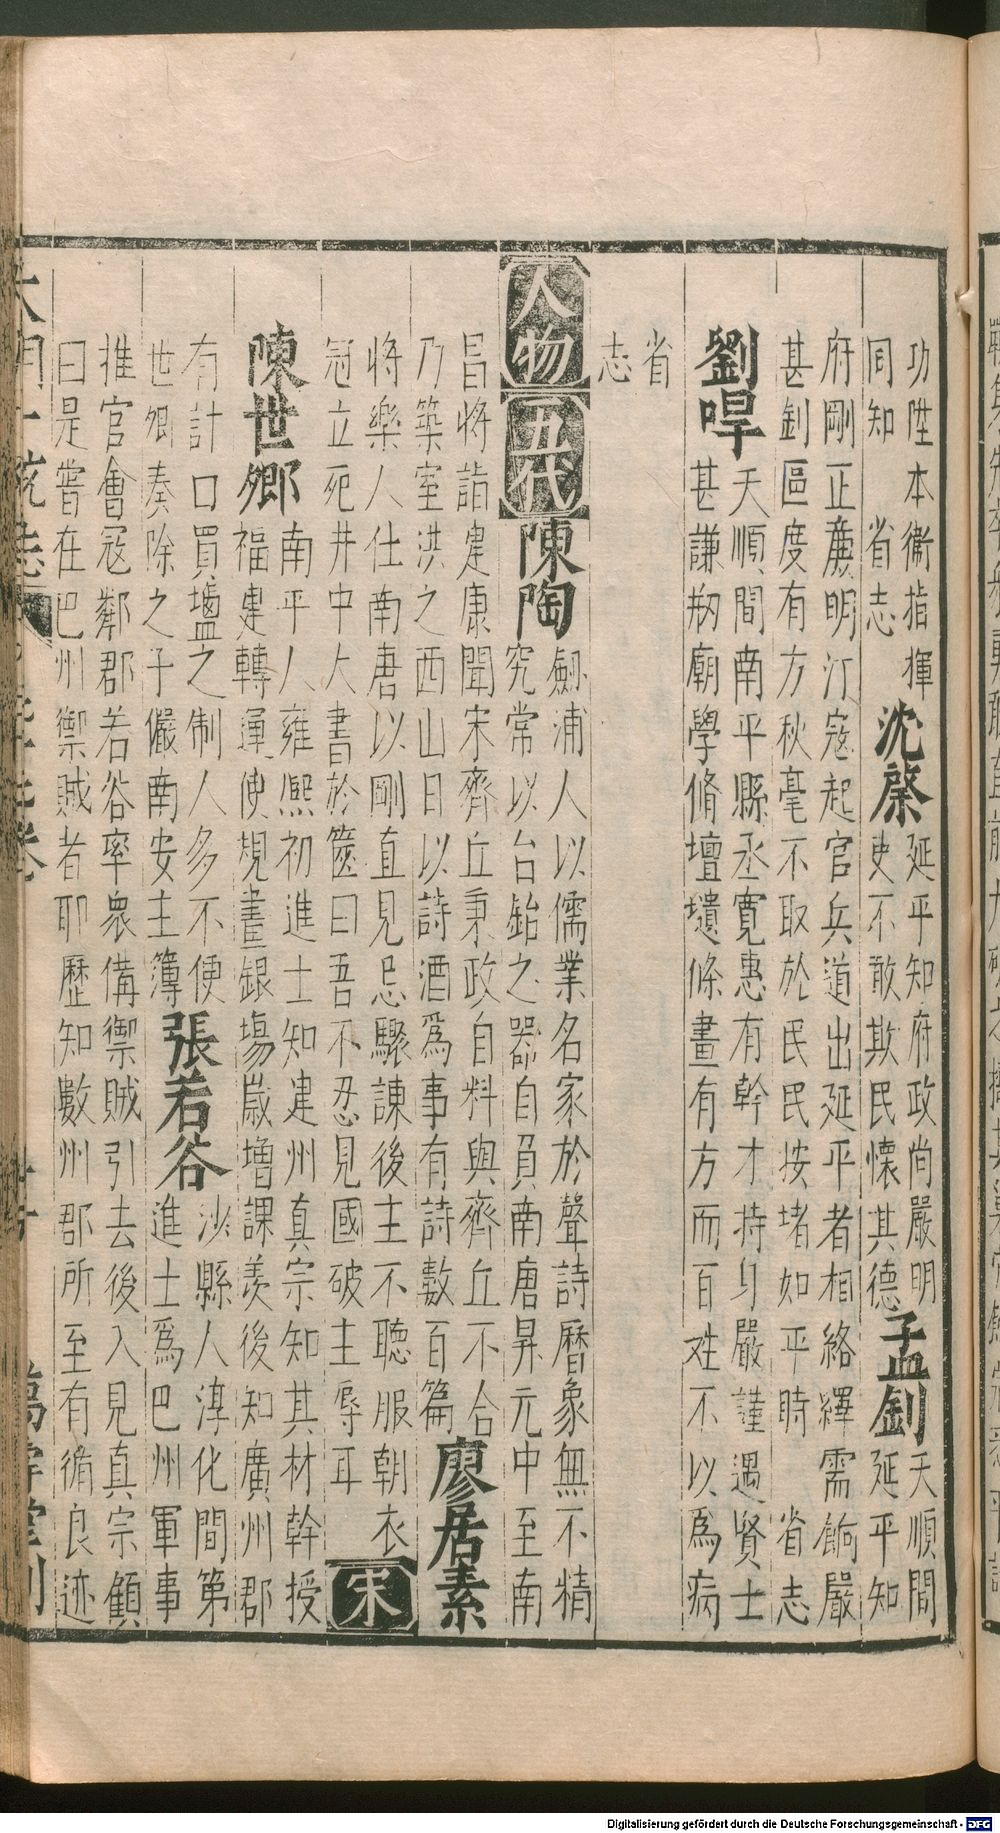 功陞本衞指揮沈棨延平知府政尚嚴明孟釗天順間
同知省志吏不敢欺民懷其德延平知
府剛正亷明汀寇起官兵道出延平者相絡繹需餉嚴
甚釗區度有方秋毫不取於民民按堵如平時省志
劉㫼天順間南平縣丞寛惠有幹才持身嚴謹遇賢士
甚謙剏廟學脩壇壝條畫有方而百姓不以爲病
省
志
人物五代陳陶劔浦人以儒業名家於聲詩曆象無不精
究常以台鉉之器自負南唐昇元中至南
昌將詣建康聞宋齊丘秉政自料與齊丘不合
乃築室洪之西山日以詩酒爲事有詩數百篇廖居素
將樂人仕南唐以剛直見忌驟諫後主不聽服朝衣
冠立死井中大書於篋曰吾不忍見國破主辱耳宋
陳世卿南平人雍熙初進士知建州真宗知其材幹授
福建轉運使規畫銀場嵗增課羨後知廣州郡
有計口買塩之制人多不便張若谷沙縣人淳化間第
世卿奏除之子儼南安主簿進士爲巴州軍事
推官會寇鄰郡若谷率衆備禦賊引去後入見真宗顧
曰是嘗在巴州禦賊者耶歷知數州郡所至有循良迹
大明一統志